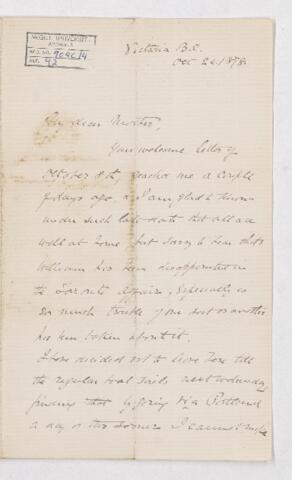 McGILL UNIVERSITY
ARCHIVES
ACC. NO.
REF. 43
Victoria B.C.
Oct 26 1878
My dear Mother,
Your welcome letter of
October 8th, reached me a couple
of days ago, & I am glad to know
under such late date that all are
well at home, but sorry to hear that
William has been disappointed in
the Toronto affair, especially as
so much trouble of one sort or another
has been taken about it.
I have decided not to leave here till
the regular boat sails next Wednesday
finding that by going via Portland
a day or two sooner I cannot make